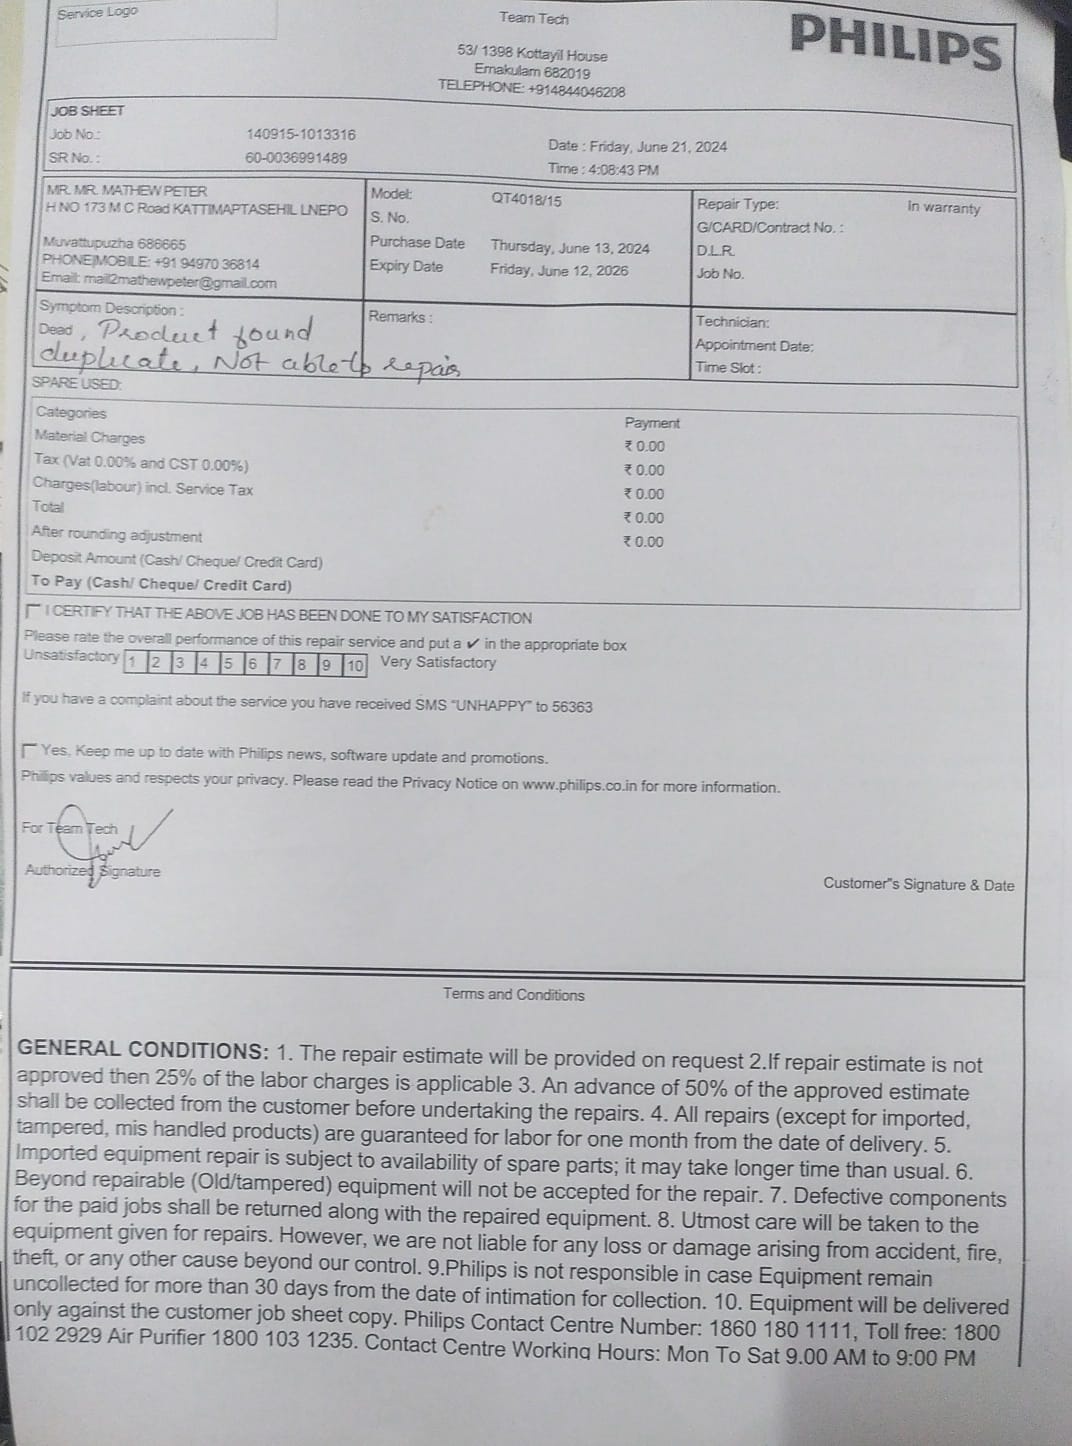 Service Logo
Team Tech
PHILIPS
53/ 1398 Kottayil House
Ernakulam 682019
TELEPHONE: +914844046208
JOB SHEET
Job No.: 140915-1013316
SR No. : 60-0036991489
Date : Friday, June 21, 2024
Time : 4:08:43 PM
MR. MR. MATHEW PETER
H NO 173 M C Road KATTIMAPTASEHIL LNEPO
Muvattupuzha 686665
PHONE|MOBILE: +91 94970 36814
Email: mail2mathewpeter@gmail.com
Model: QT4018/15
S. No.
Purchase Date Thursday, June 13, 2024
Expiry Date Friday, June 12, 2026
Repair Type: In warranty
G/CARD/Contract No. :
D.L.R.
Job No.
Symptom Description :
Dead , Product found
duplicate, Not able to repair
Remarks :
Technician:
Appointment Date:
Time Slot :
SPARE USED:
Categories Payment
Material Charges ₹ 0.00
Tax (Vat 0.00% and CST 0.00%) ₹ 0.00
Charges(labour) incl. Service Tax ₹ 0.00
Total ₹ 0.00
After rounding adjustment ₹ 0.00
Deposit Amount (Cash/ Cheque/ Credit Card)
To Pay (Cash/ Cheque/ Credit Card)
I CERTIFY THAT THE ABOVE JOB HAS BEEN DONE TO MY SATISFACTION
Please rate the overall performance of this repair service and put a ✔ in the appropriate box
Unsatisfactory 1 2 3 4 5 6 7 8 9 10 Very Satisfactory
If you have a complaint about the service you have received SMS "UNHAPPY" to 56363
Yes, Keep me up to date with Philips news, software update and promotions.
Philips values and respects your privacy. Please read the Privacy Notice on www.philips.co.in for more information.
For Team Tech
Authorized Signature
Customer"s Signature & Date
Terms and Conditions
GENERAL CONDITIONS: 1. The repair estimate will be provided on request 2.If repair estimate is not
approved then 25% of the labor charges is applicable 3. An advance of 50% of the approved estimate
shall be collected from the customer before undertaking the repairs. 4. All repairs (except for imported,
tampered, mis handled products) are guaranteed for labor for one month from the date of delivery. 5.
Imported equipment repair is subject to availability of spare parts; it may take longer time than usual. 6.
Beyond repairable (Old/tampered) equipment will not be accepted for the repair. 7. Defective components
for the paid jobs shall be returned along with the repaired equipment. 8. Utmost care will be taken to the
equipment given for repairs. However, we are not liable for any loss or damage arising from accident, fire,
theft, or any other cause beyond our control. 9.Philips is not responsible in case Equipment remain
uncollected for more than 30 days from the date of intimation for collection. 10. Equipment will be delivered
only against the customer job sheet copy. Philips Contact Centre Number: 1860 180 1111, Toll free: 1800
102 2929 Air Purifier 1800 103 1235. Contact Centre Working Hours: Mon To Sat 9.00 AM to 9:00 PM